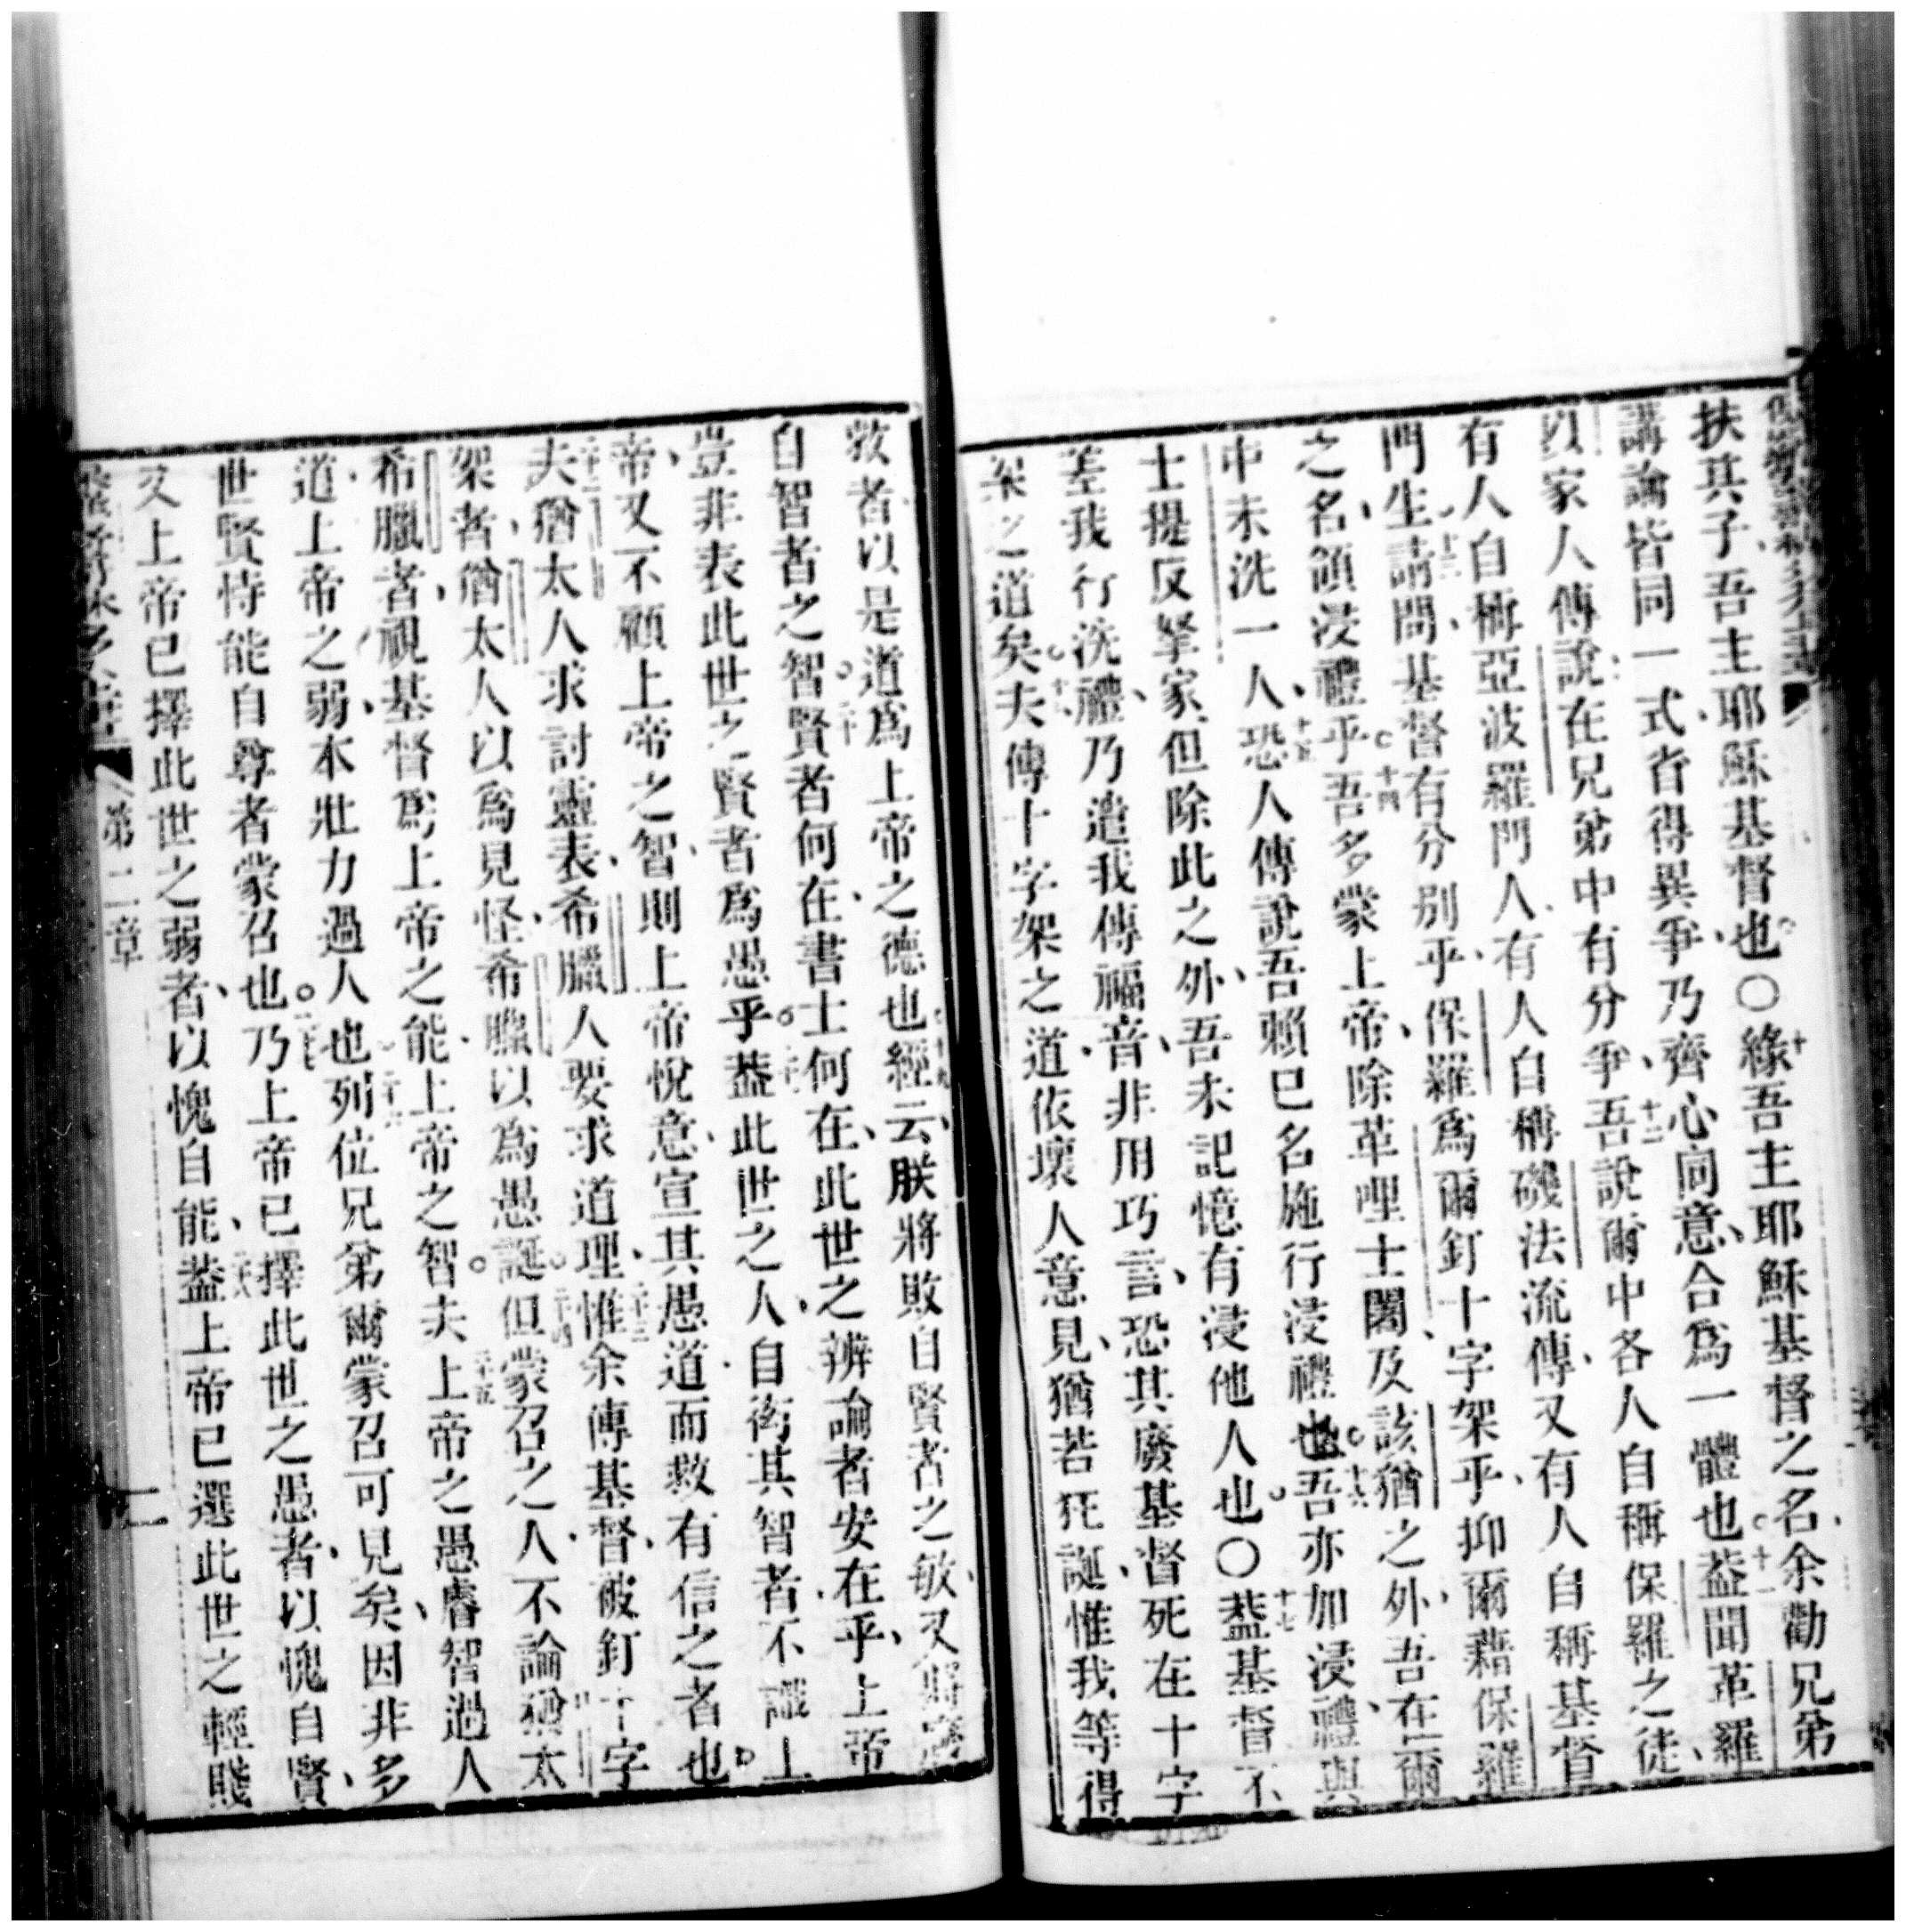 扶其子吾主耶穌基督也○十緣吾主耶穌基督之名余勸兄弟
講論皆同一式省得異爭乃齊心同意合爲一體也十一葢聞革羅
以家人傳說在兄弟中有分爭吾十二說爾中各人自稱保羅之徒
有人自稱亞波羅門人有人自稱磯法流傳又有人自稱基督
門生十三請問基督有分別乎保羅爲爾釘十字架乎抑爾藉保羅
之名領浸禮乎十四吾多蒙上帝除革哩士闍及該猶之外吾在爾
中未洗一人十五恐人傳說吾賴巳名施行浸禮也十六吾亦加浸禮與
士提反拏家但除此之外吾未記憶有浸他人也○十七葢基督不
差我行洗禮乃遣我傳福音非用巧言恐其廢基督死在十字
架之道矣十八夫傳十字架之道依壞人意見猶若狂誕惟我等得
救者以是道爲上帝之德也十九經云朕將敗自賢者之敏又將
自智者之智二十賢者何在書士何在此世之辨論者安在乎上帝
豈非表此世之賢者爲愚乎葢此世之人自衒其智者不識上
帝又不顧上帝之智則上帝悅意宣其愚道而救有信之者也
二十二夫猶太人求討靈表希臘人要求道理二十三惟余傳基督被釘十字
架者猶太人以爲見怪希臘以爲愚誕二十四但蒙召之人不論猶太
希臘者視基督爲上帝之能上帝之智二十五夫上帝之愚睿智過人
道上帝之弱本壯力過人也二十六列位兄弟爾蒙召可見矣因非多
世賢恃能自尊者蒙召也二十七乃上帝已擇此世之愚者以愧自賢
又上帝已擇此世之弱者以愧自能二十八葢上帝已選此世之輕賤
第二章
二